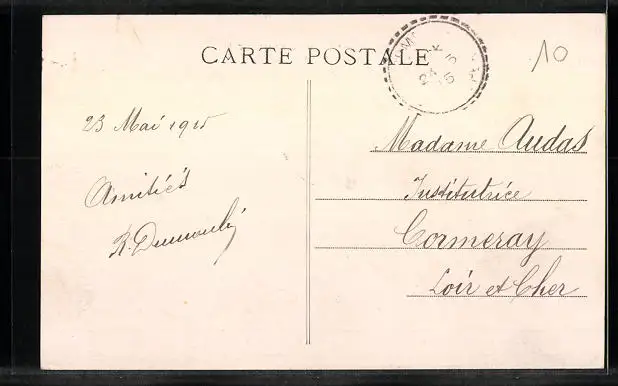 CARTE POSTALE
10
23 Mai 1915
Amitiés
R. Dumoulin
Madame Audas
Institutrice
Cormeray
Loir et Cher